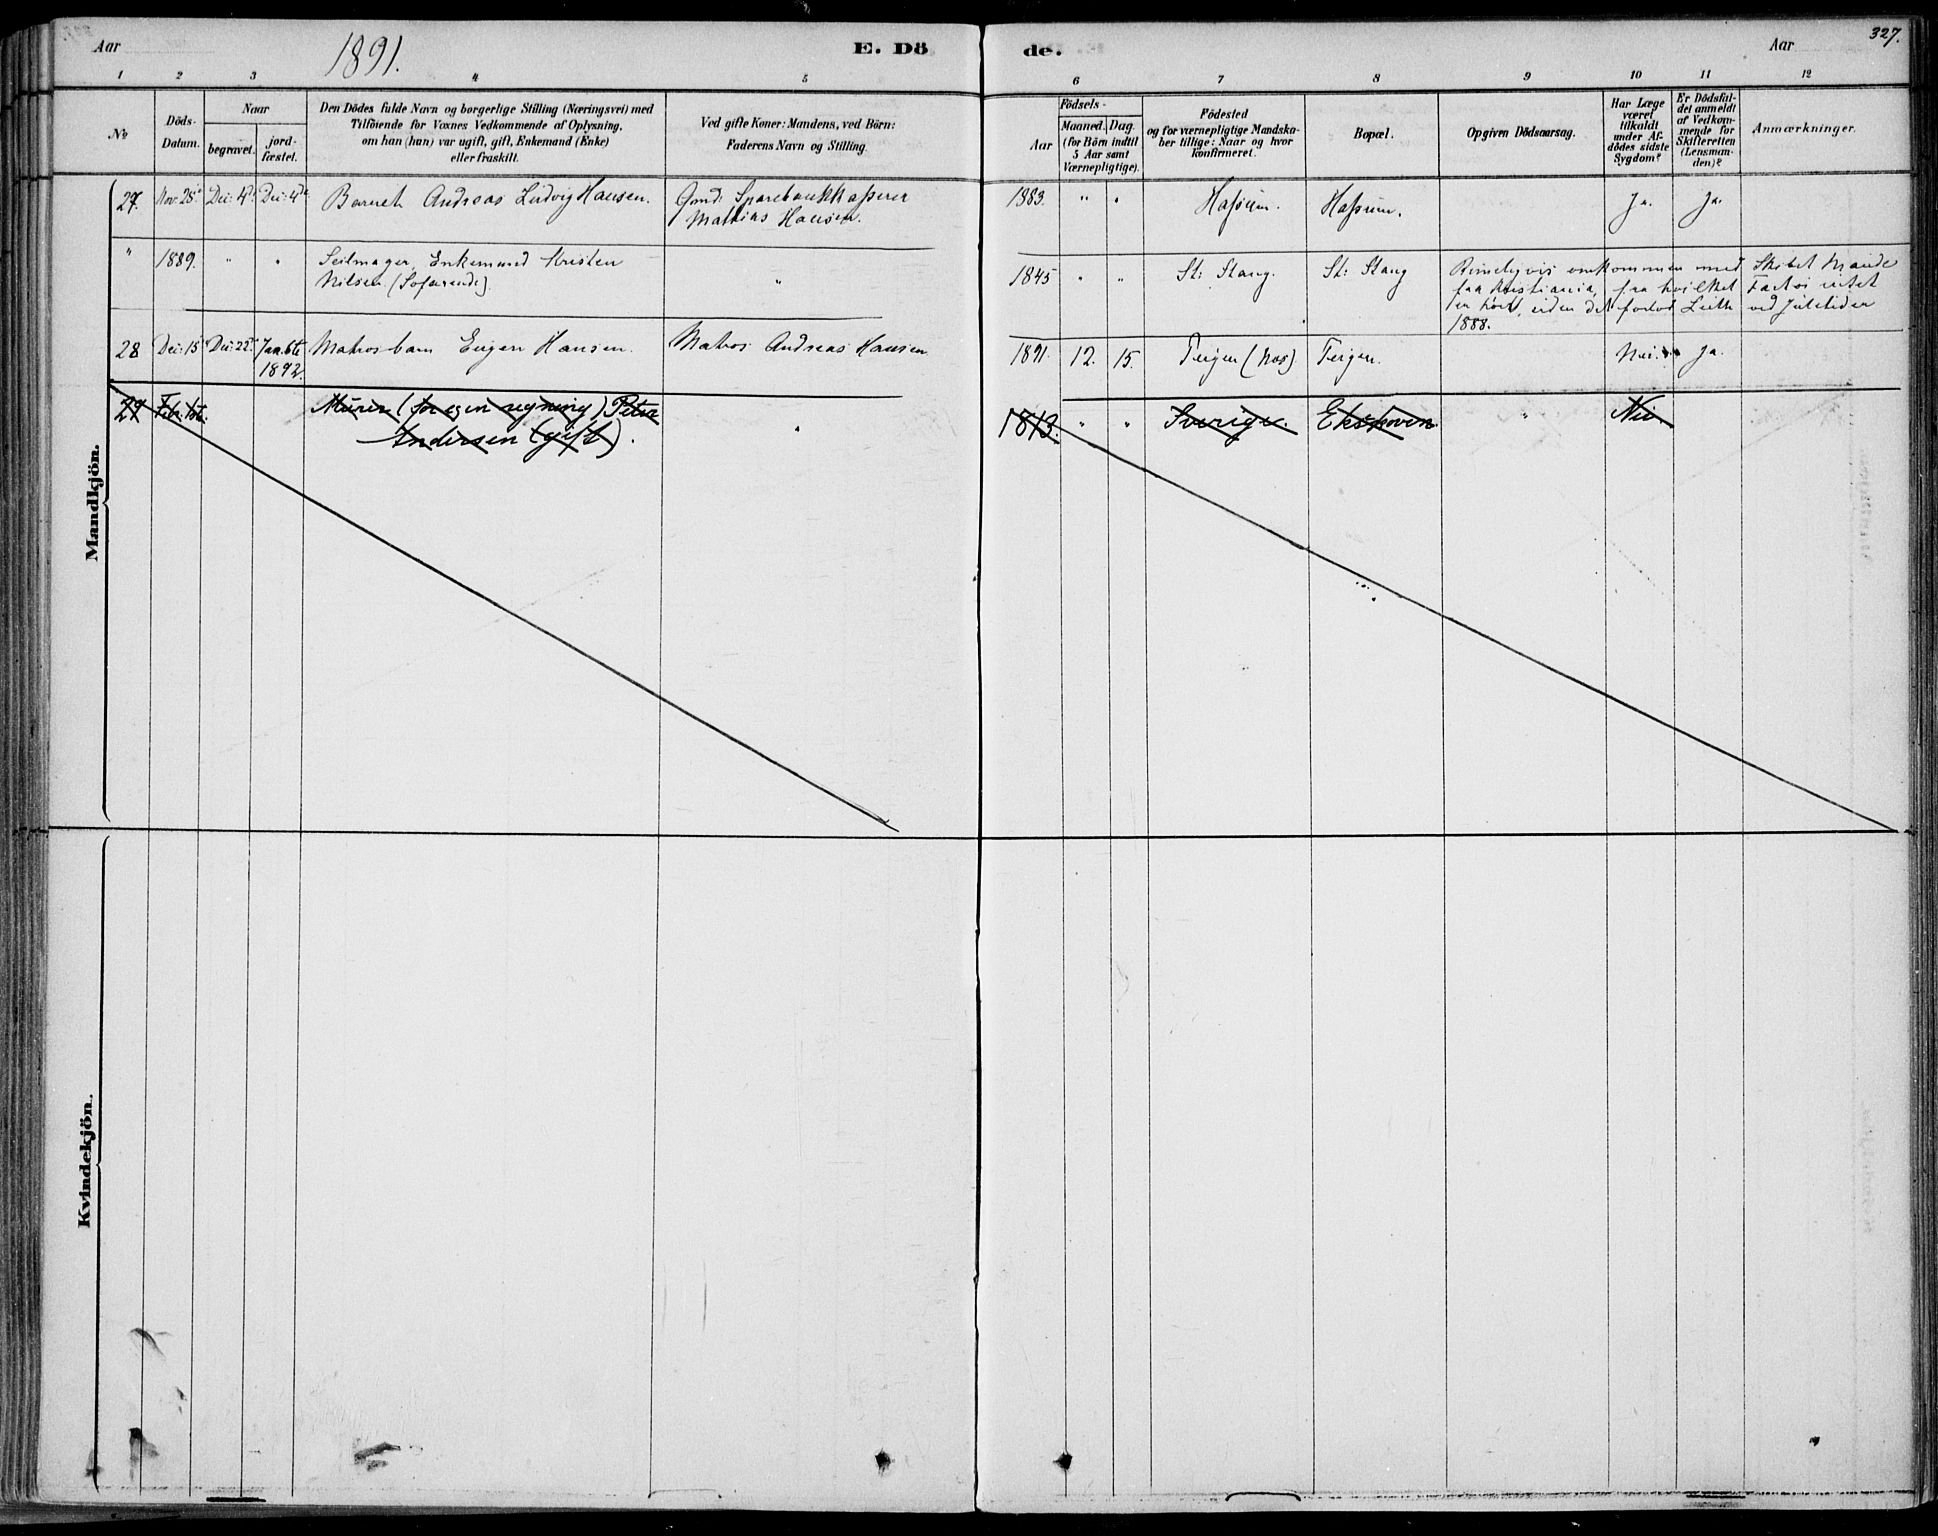 Aar 1891. E. Dö de. Aar 327.
1 2 3 4 5 6 7 8 9 10 11 12
No
Döds-
Datum.
Naar
begravet.
jord-
fæstet.
Den Dödes fulde Navn og borgerlige Stilling (Næringsvei) med
Tilföiende for Voxnes Vedkommende af Oplysning,
om han (hun) var ugift, gift, Enkemand (Enke)
eller fraskilt.
Ved gifte Koner: Mandens, ved Börn:
Faderens Navn og Stilling.
Födsels-
Aar
Maaned. Dag.
(for Börn indtil
5 Aar samt
Værnepligtige).
Födested
og for værnepligtige Mandska-
ber tillige: Naar og hvor
konfirmeret.
Bopæl.
Opgiven Dödsaarsag.
Har Læge
været
tilkaldt
under Af-
dödes sidste
Sygdom?
Er Dödsfal-
det anmeldt
af Vedkom-
mende for
Skifteretten
(Lensman-
den)?
Anmærkninger.
Mandkjön.
27. Nov: 28de Dec: 4de Dec: 4de Barnet Andreas Ludvig Hansen. Gmd: Sparebankkasserer 1883. " " Hassum. Hassum. Ja. Ja.
Mathias Hansen.
" 1889. " " Seilmager, Enkemand Kristen " 1845 " " St: Stang. St: Stang Rimeligvis omkommen med Skibet
Nilsen (Sofarende)
fra Kristiania, fra hvilket Intet
er hört, siden det forlod Leith ved Juletider
1888.
28 Dec: 15 Dec: 22 Jan. 6te Matros barn Eugen Hansen. Matros Andreas Hansen 1891. 12. 15. Teigen (Nas) Teigen. Nei. Ja.
1892.
29 Murer (for egen regning) Peter " 1813. " " Sverige. " Nei.
Andersen (gift).
Kvindekjön.